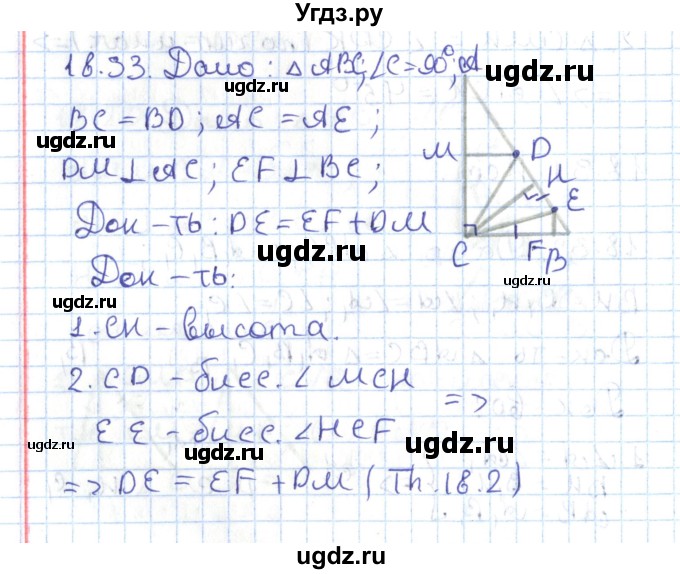 Угдз.ру
18.33. Дано: △ABC; ∠C=90°; A
BC = BD; AC = AE;
ugdz.ru
ugdz.ru
M D
DM⊥AC; EF⊥BC;
H
E
ugdz.ru
Док-ть: DE=EF+DM
C F B
ugdz.ru
ugdz.ru
Док-ть:
ugdz.ru
1. CH - высота.
ugdz.ru
2. CD - бисс. ∠MCH
=>
EE - бисс. ∠HCF
ugdz.ru
ugdz.ru
ugdz.ru
=> DE = EF + DM (Th.18.2)
ugdz.ru
ugdz.ru
ugdz.ru